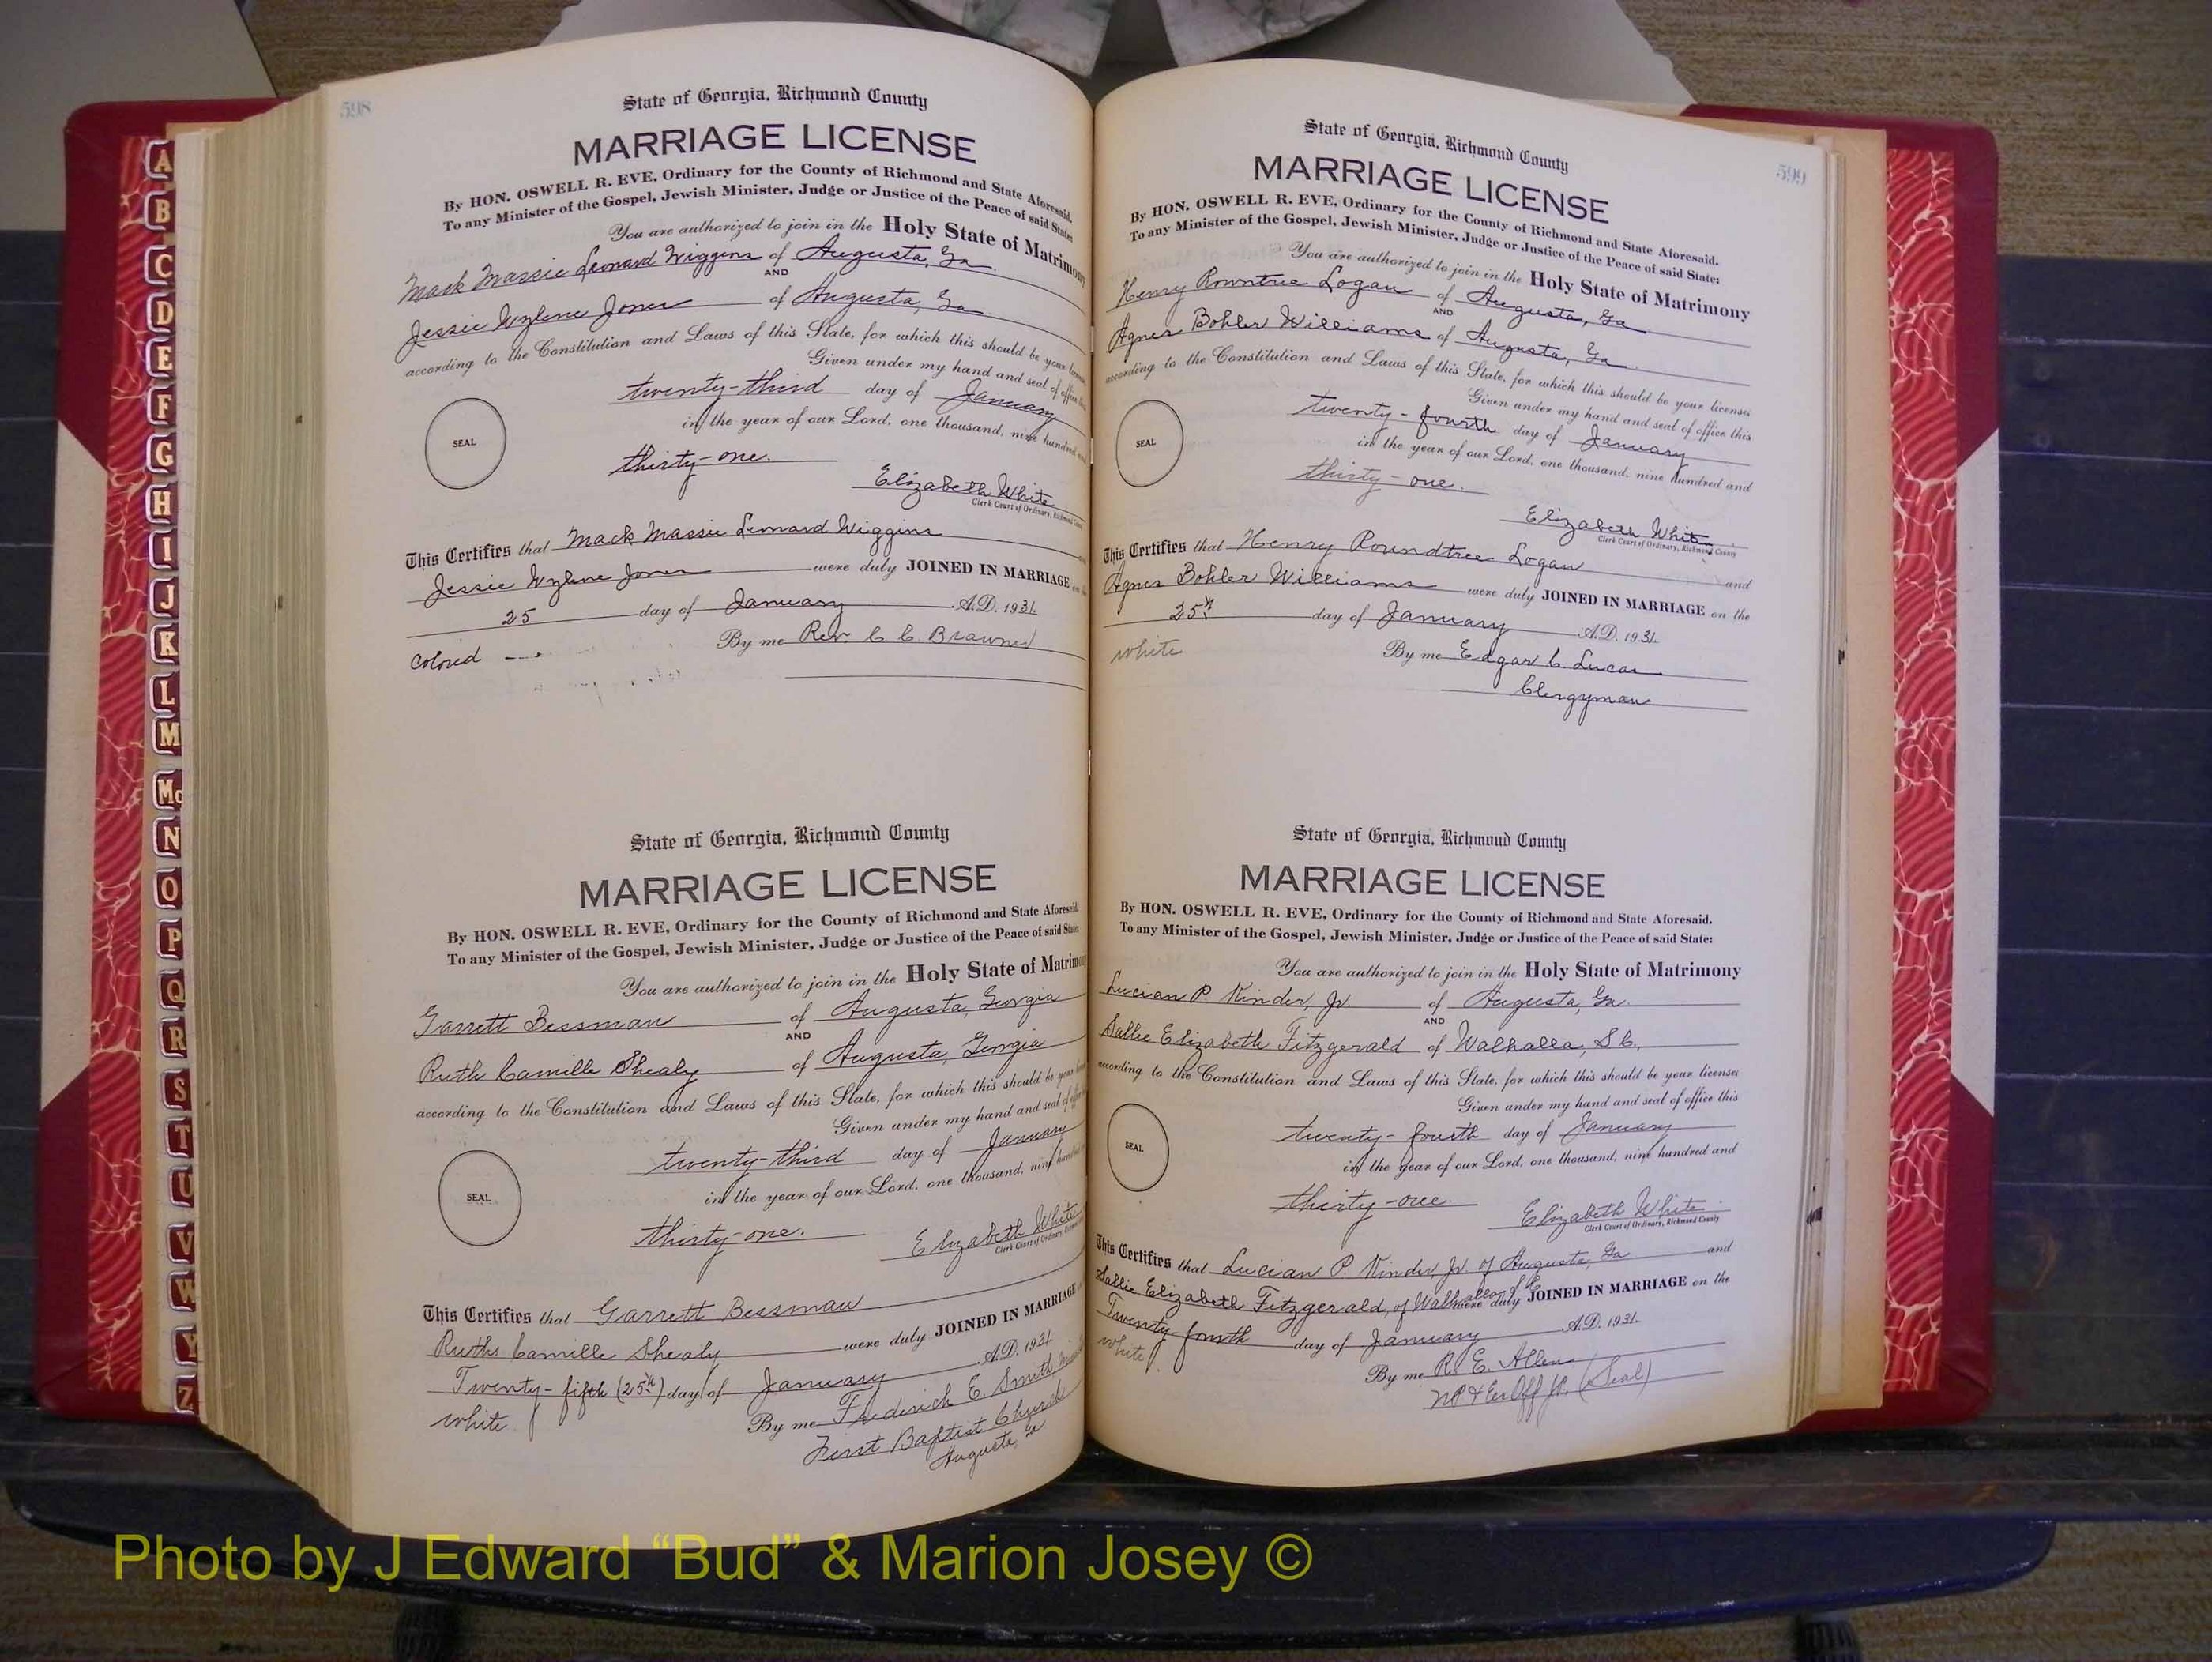 A
B
C
D
E
F
G
H
I
J
K
L
M
Mc
N
O
P
Q
R
S
T
U
V
W
Y
Z
598
State of Georgia, Richmond County
MARRIAGE LICENSE
By HON. OSWELL R. EVE, Ordinary for the County of Richmond and State Aforesaid.
To any Minister of the Gospel, Jewish Minister, Judge or Justice of the Peace of said State:
You are authorized to join in the Holy State of Matrimony
Mack Massie Leonard Wiggins of Augusta, Ga
AND
Jessie Wylene Jones of Augusta, Ga
according to the Constitution and Laws of this State, for which this should be your license
Given under my hand and seal of office
twenty-third day of January
in the year of our Lord, one thousand, nine hundred
SEAL
thirty-one.
Elizabeth White
Clerk Court of Ordinary, Richmond
This Certifies that Mack Massie Leonard Wiggins
Jessie Wylene Jones were duly JOINED IN MARRIAGE
25 day of January A.D. 1931.
colored By me Rev. C C Brown
State of Georgia, Richmond County
MARRIAGE LICENSE
By HON. OSWELL R. EVE, Ordinary for the County of Richmond and State Aforesaid.
To any Minister of the Gospel, Jewish Minister, Judge or Justice of the Peace of said State:
You are authorized to join in the Holy State of Matrimo
Garrett Bessman of Augusta, Georgia
AND
Ruth Camille Shealy of Augusta, Georgia
according to the Constitution and Laws of this State, for which this should be your
Given under my hand and seal of
twenty-third day of January
in the year of our Lord, one thousand, nine
SEAL
thirty-one.
Elizabeth White
Clerk Court of Ordinary,
This Certifies that Garrett Bessman
Ruthe Camille Shealy were duly JOINED IN MARRIAGE
Twenty-fifth (25th) day of January A.D. 1931
white By me Frederick E. Smith
First Baptist Church
Augusta, Ga
599
State of Georgia, Richmond County
MARRIAGE LICENSE
By HON. OSWELL R. EVE, Ordinary for the County of Richmond and State Aforesaid.
To any Minister of the Gospel, Jewish Minister, Judge or Justice of the Peace of said State:
You are authorized to join in the Holy State of Matrimony
Henry Rowntree Logan of Augusta, Ga
AND
Agnes Bohler Williams of Augusta, Ga.
according to the Constitution and Laws of this State, for which this should be your licenses
Given under my hand and seal of office this
twenty-fourth day of January
in the year of our Lord, one thousand, nine hundred and
SEAL
thirty-one.
Elizabeth White
Clerk Court of Ordinary, Richmond County
This Certifies that Henry Roundtree Logan and
Agnes Bohler Williams were duly JOINED IN MARRIAGE on the
25th day of January A.D. 1931.
white By me Edgar C. Lucas
Clergyman
State of Georgia, Richmond County
MARRIAGE LICENSE
By HON. OSWELL R. EVE, Ordinary for the County of Richmond and State Aforesaid.
To any Minister of the Gospel, Jewish Minister, Judge or Justice of the Peace of said State:
You are authorized to join in the Holy State of Matrimony
Lucian P. Kinder, Jr. of Augusta, Ga.
AND
Sallie Elizabeth Fitzgerald of Walhalla, S.C.
according to the Constitution and Laws of this State, for which this should be your licenses
Given under my hand and seal of office this
twenty-fourth day of January
in the year of our Lord, one thousand, nine hundred and
SEAL
thirty-one
Elizabeth White
Clerk Court of Ordinary, Richmond County
This Certifies that Lucian P. Kinder, Jr. of Augusta, Ga and
Sallie Elizabeth Fitzgerald, of Walhalla, S.C. were duly JOINED IN MARRIAGE on the
Twenty-fourth day of January A.D. 1931.
white By me R. E. Allen
NP & Ex Off J.P. (Seal)
Photo by J Edward “Bud” & Marion Josey ©